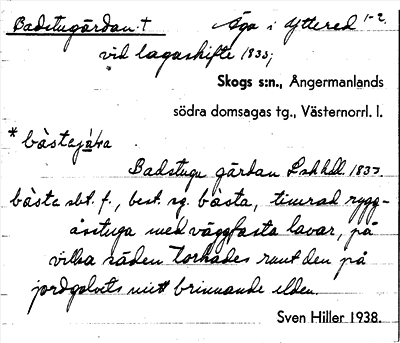 Badstugärdan † Äga i Yttered 1-2.
vid lagaskifte 1833;
Skogs s:n., Ångermanlands
södra domsagas tg., Västernorrl. l.
* bàstejá̀ra
Badstugu gärdan Lskhdl. 1837.
bàste sbt. f., best. sg. bàsta, timrad rygg-
åsstuga med väggfasta lavar, på
vilka säden torkades runt den på
jordgolvets mitt brinnande elden.
Sven Hiller 1938.